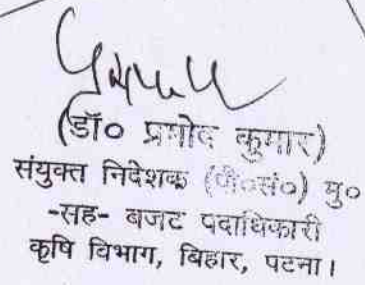 (डॉ० प्रमोद कुमार)
संयुक्त निदेशक (पौ०सं०) मु०
-सह- बजट पदाधिकारी
कृषि विभाग, बिहार, पटना।